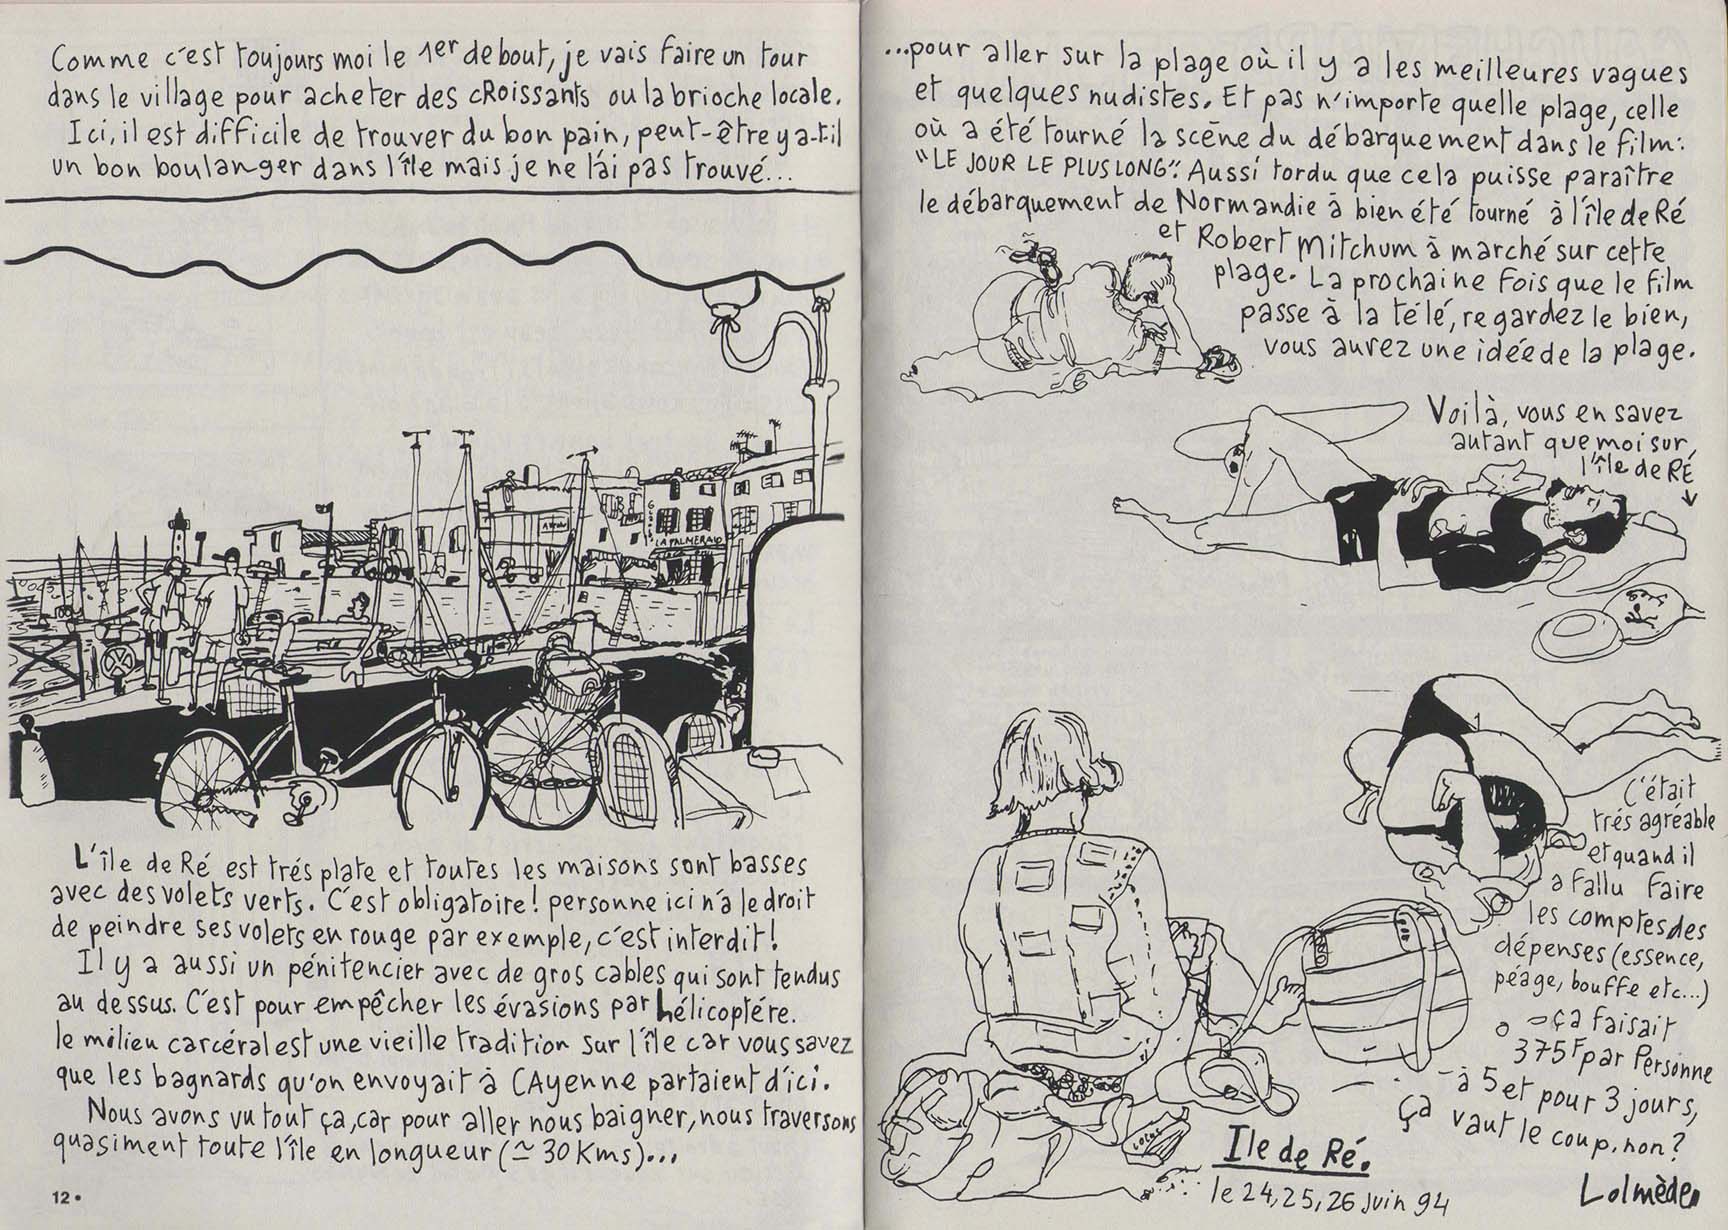 Comme c'est toujours moi le 1er debout, je vais faire un tour
dans le village pour acheter des cRoissants ou la brioche locale.
Ici, il est difficile de trouver du bon pain, peut-être y a-t-il
un bon boulanger dans l'île mais je ne l'ai pas trouvé...
GLACES
LA PALMERAIE
L'île de Ré est trés plate et toutes les maisons sont basses
avec des volets verts. C'est obligatoire! personne ici n'a le droit
de peindre ses volets en rouge par exemple, c'est interdit!
Il y a aussi un pénitencier avec de gros cables qui sont tendus
au dessus. C'est pour empêcher les évasions par hélicoptére.
le milieu carcéral est une vieille tradition sur l'île car vous savez
que les bagnards qu'on envoyait à CAyenne partaient d'ici.
Nous avons vu tout ça, car pour aller nous baigner, nous traversons
quasiment toute l'île en longueur (≃ 30 Kms)...
12 •
...pour aller sur la plage où il y a les meilleures vagues
et quelques nudistes. Et pas n'importe quelle plage, celle
où a été tourné la scène du débarquement dans le film:
"LE JOUR LE PLUS LONG". Aussi tordu que cela puisse paraître
le débarquement de Normandie à bien été tourné à l'île de Ré
et Robert Mitchum à marché sur cette
plage. La prochaine fois que le film
passe à la télé, regardez le bien,
vous aurez une idée de la plage.
Voilà, vous en savez
autant que moi sur
l'île de RÉ
C'était
trés agréable
et quand il
a fallu faire
les comptes des
dépenses (essence,
péage, bouffe etc...)
ça faisait
375F par Personne
à 5 et pour 3 jours,
ça vaut le coup, non?
LOCAL
Ile de Ré.
le 24, 25, 26 juin 94
Lolmède